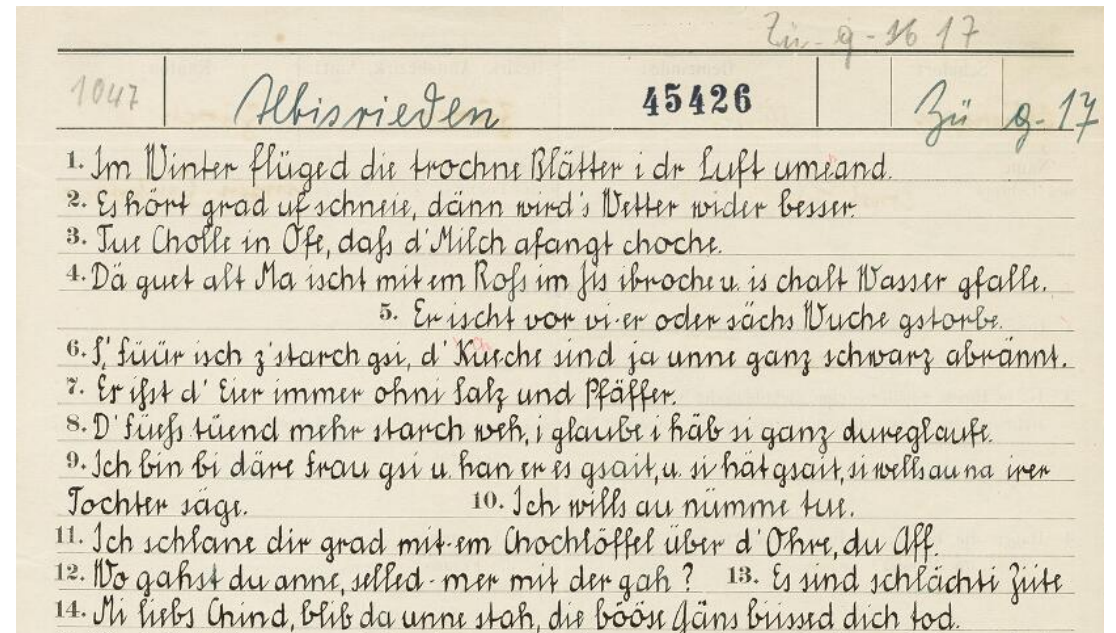 Zü - g - 16 17
1047 Albisrieden 45426 Zü g. 17
1. Im Winter flüged die trochne Blätter i dr Luft umeand.
2. Es hört grad uf schneie, dänn wird's Wetter wider besser.
3. Tue Cholle in Ofe, daß d'Milch afangt choche.
4. Dä guet alt Ma ischt mit em Roß im Jis ibroche u. is chalt Wasser gfalle.
5. Er ischt vor vi-er oder sächs Wuche gstorbe.
6. S' Füür isch z'starch gsi, d' Kueche sind ja unne ganz schwarz abrännt.
7. Er ißt d' Eier immer ohni Salz und Pfäffer.
8. D' Füeß tüend mehr starch weh, i glaube i häb si ganz dureglaufe.
9. Ich bin bi däre Frau gsi u. han er es gsait, u. si hät gsait, si wells au na irer
Tochter säge. 10. Ich wills au nümme tue.
11. Ich schlane dir grad mit-em Chochlöffel über d'Ohre, du Aff.
12. Wo gahst du anne, selled-mer mit der gah? 13. Es sind schlächti Ziite
14. Mi liebs Chind, blib da unne stah, die bööse Gäns biissed dich tod.